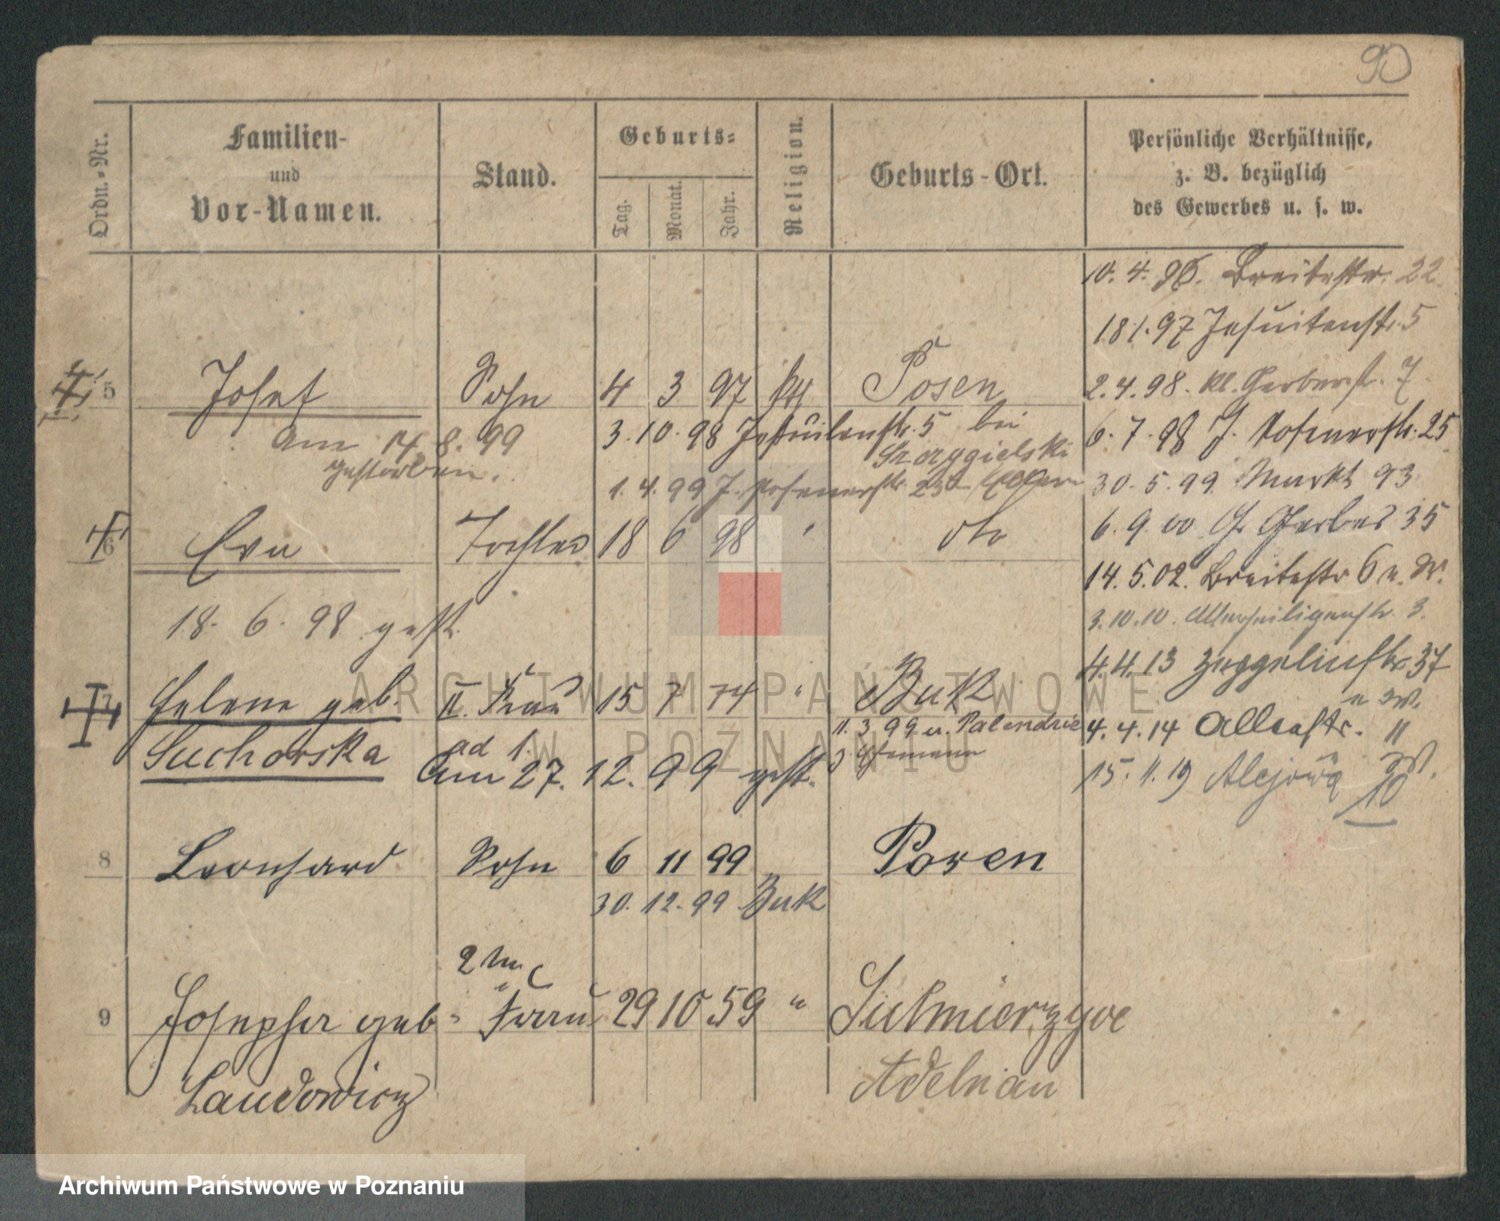 90
Ordn.-Nr.
Familien-
und
Vor-Namen.
Stand.
Geburts-
Tag. Monat. Jahr.
Religion.
Geburts-Ort.
Persönliche Verhältnisse,
z. B. bezüglich
des Gewerbes u. s. w.
10. 4. 96. Breitestr. 22.
18.1.97 Jesuitenstr. 5
2.4.98. kl. Gerberstr. 7
6.7.98 J. Posenerstr. 25
30.5.99 Markt 93
6.9.00 Gr. Gerber 35
14.5.02. Breitestr 6 u. W.
3.10.10. Allerheiligenstr. 3.
4.4.13 Zeppelinstr. 37
u W.
4.4.14 Allee str. 11
W.
15.11.19 Alejowa 10
5 Josef Sohn 4 3 97 kth Posen
am 14.8.99
gestorben.
3.10.98 Jesuitenstr. 5 bei
1.4.99 J. Posenerstr. 25a Eltern
6 Eva Tochter 18 6 98 " dto
18. 6. 98 gest.
7 Helene geb. II. Frau 15 7 74 " Buk
Suchorska ad 1.
11.3.99 u. Palendzie
3 Ehemann
Am 27. 12. 99 gest.
8 Leonhard Sohn 6 11 99 Posen
30. 12. 99 Buk
9 Josepha geb. Frau 29 10 59 " Sulmierzyce
Laudowicz
Adelnau
ARCHIWUM PAŃSTWOWE
W POZNANIU
Archiwum Państwowe w Poznaniu